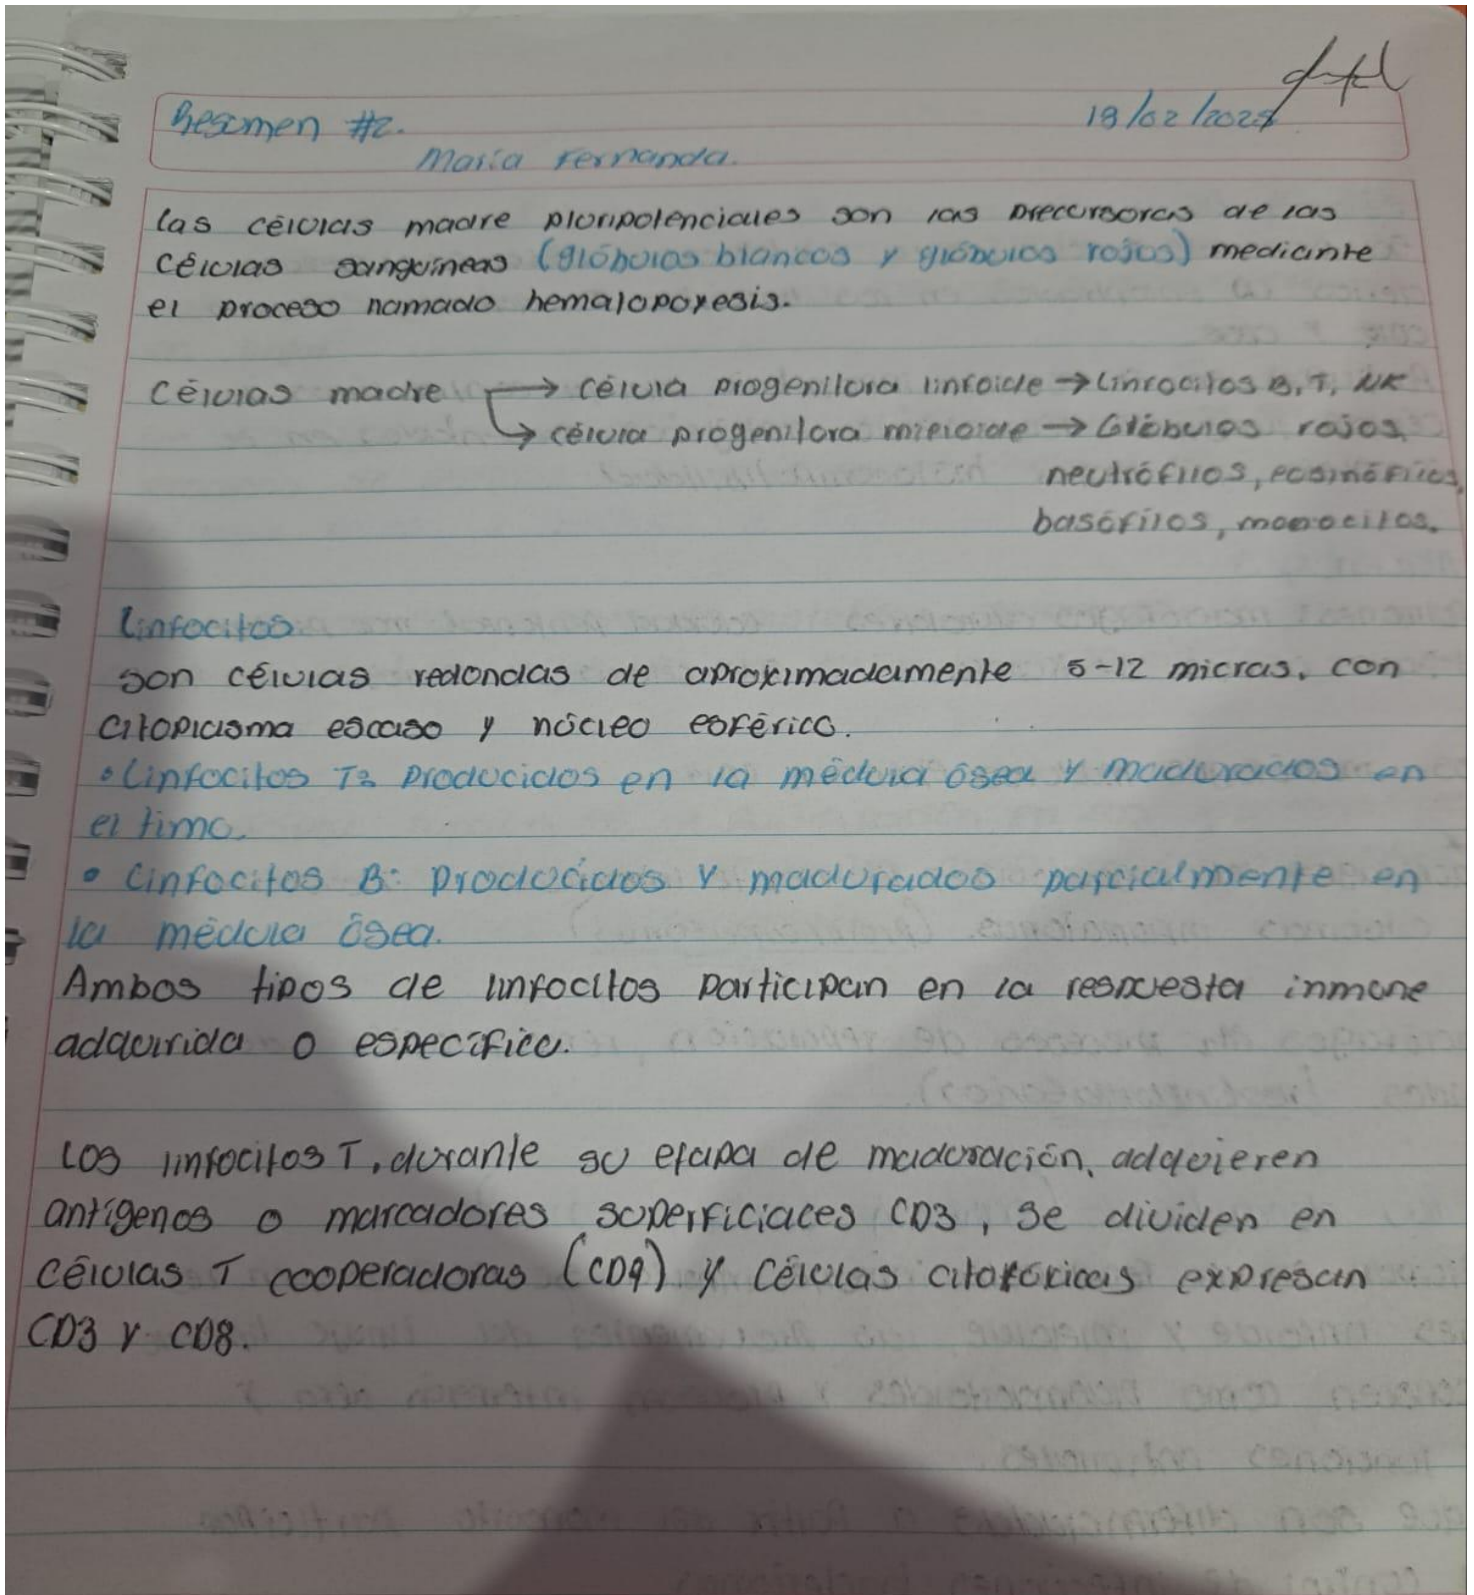 Resumen #2.
19/02/202
María Fernanda.
las células madre pluripotenciales son las precursoras de las
células sanguíneas (glóbulos blancos y glóbulos rojos) mediante
el proceso llamado hematopoyesis.
Células madre → célula progenitora linfoide → Linfocitos B, T, NK
↳ célula progenitora mieloide → Glóbulos rojos,
neutrófilos, eosinófilos,
basófilos, monocitos.
Linfocitos
son células redondas de aproximadamente 5-12 micras, con
citoplasma escaso y núcleo esférico.
• Linfocitos T: Producidos en la médula ósea y madurados en
el timo.
• Linfocitos B: Producidos y madurados parcialmente en
la médula ósea.
Ambos tipos de linfocitos participan en la respuesta inmune
adquirida o específica.
Los linfocitos T, durante su etapa de maduración, adquieren
antígenos o marcadores superficiales CD3, se dividen en
células T cooperadoras (CD4) y células citotóxicas expresan
CD3 y CD8.